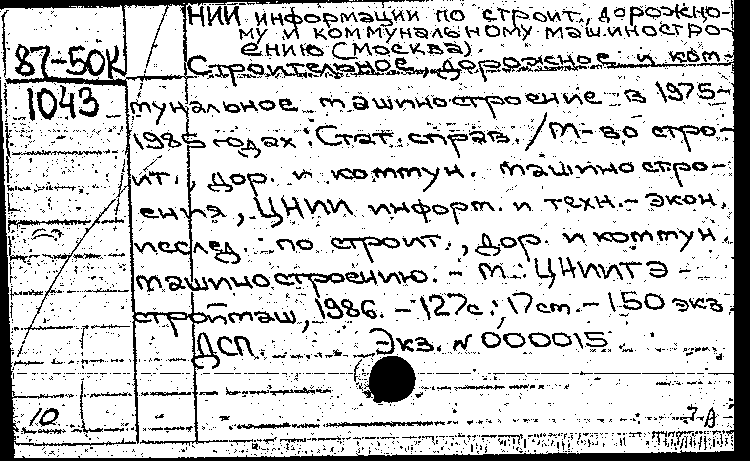 НИИ информации по строит., дорожно-
му и коммунальному машиностро-
ению (Москва).
87-50К
Строительное, дорожное и ком-
1043
мунальное машиностроение в 1975-
1985 годах: Стат. справ. / М-во стро-
ит., дор. и коммун. машиностро-
ения, ЦНИИ информ. и техн.-экон.
исслед. по строит., дор. и коммун.
машиностроению. - М.: ЦНИИТЭ-
строймаш, 1986. - 127с.; 17см. - 150 экз.
ДСП. Экз. N 000015
10